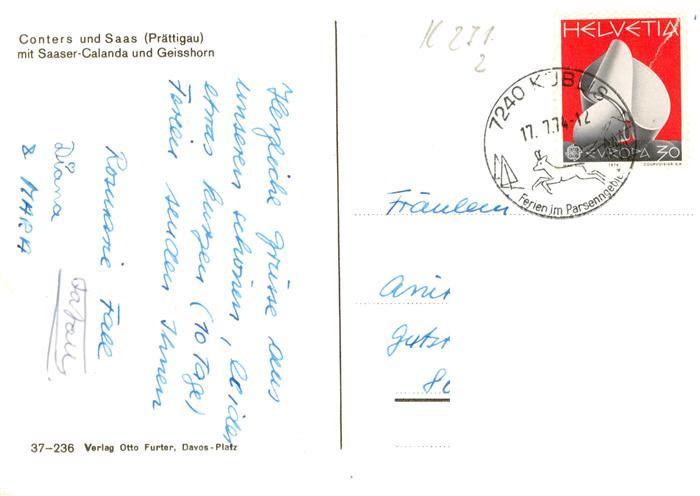 Conters und Saas (Prättigau)
mit Saaser-Calanda und Geisshorn
Herzliche Grüsse aus
unseren schönen, leider
etwas kurzen (10 Tage)
Ferien senden Ihnen
Rosmarie
Diana
& MARA
37-236 Verlag Otto Furter, Davos-Platz
K 271.
2
HELVETIA
EUROPA 30
1974 COURVOISIER S.A.
7240 KÜBLIS
17.7.74-12
Ferien im Parsenngebiet
Fräulein